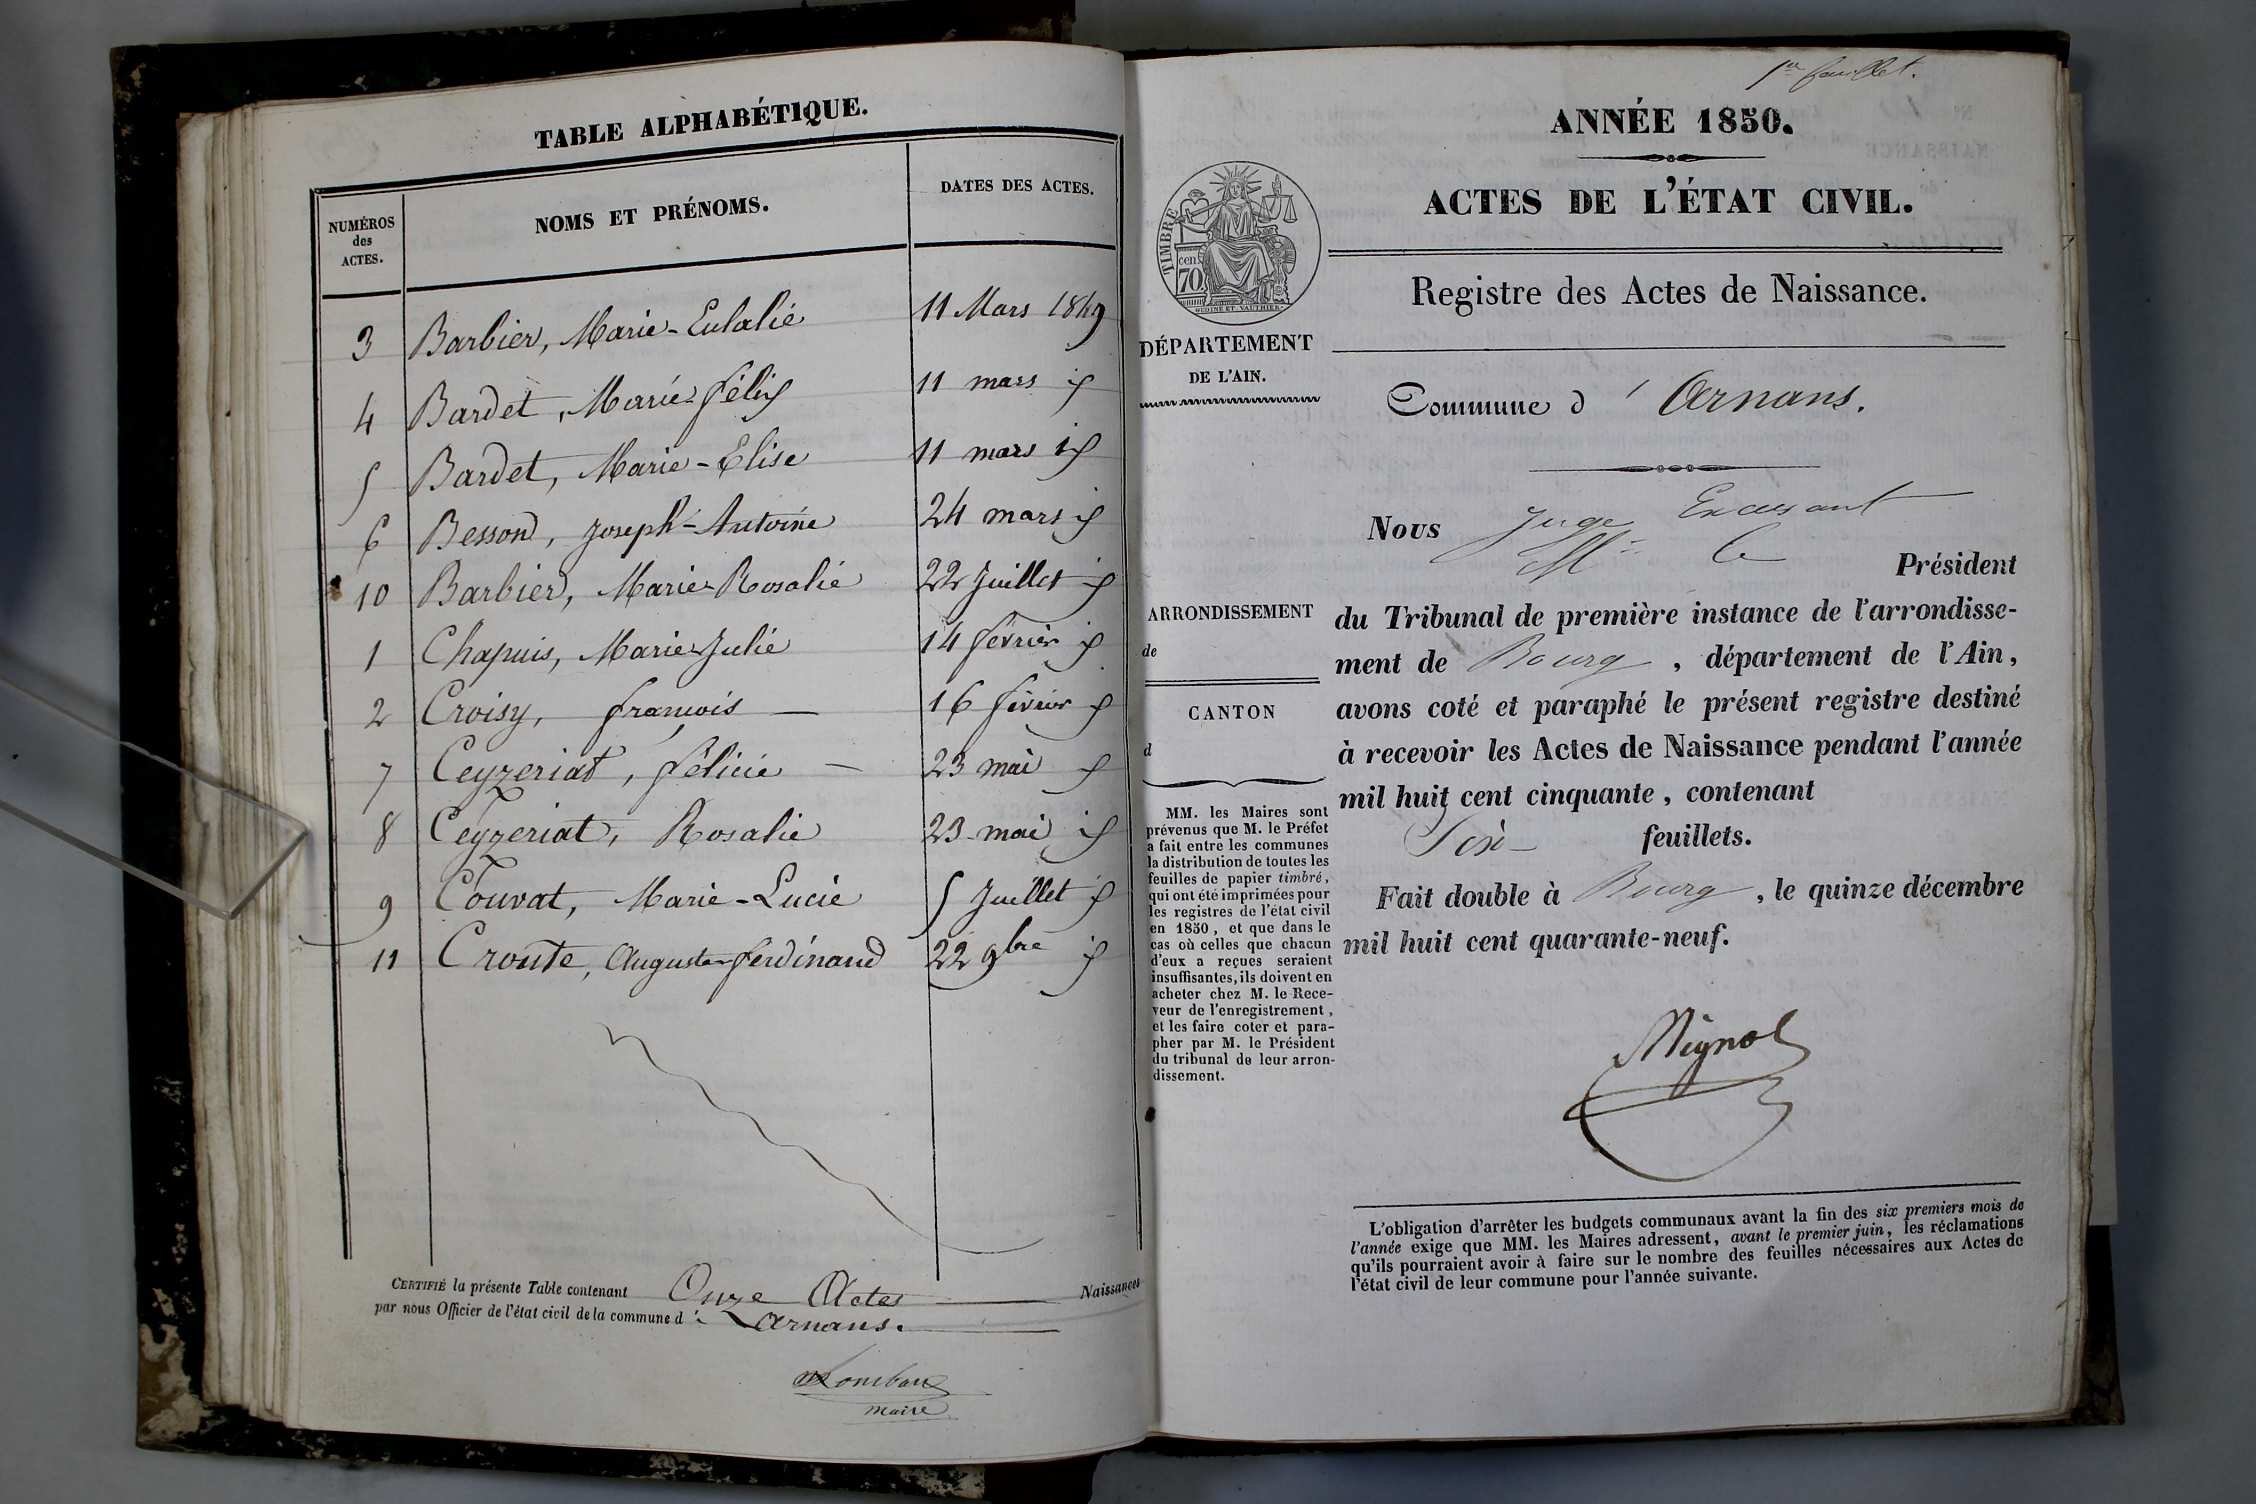 TABLE ALPHABÉTIQUE.
NUMÉROS
des
ACTES.
NOMS ET PRÉNOMS.
DATES DES ACTES.
3 Barbier, Marie-Eulalie 11 Mars 1849
4 Bardet, Marie félix 11 mars id
5 Bardet, Marie-Elise 11 mars id
6 Besson, Joseph-Antoine 24 mars id
10 Barbier, Marie-Rosalie 22 Juillet id
1 Chapuis, Marie-Julie 14 février id
2 Croisy, françois 16 février id
7 Ceyzeriat, félicie 23 mai id
8 Ceyzeriat, Rosalie 23 mai id
9 Couvat, Marie-Lucie 5 Juillet id
11 Croute, Auguste-ferdinand 22 9bre id
CERTIFIÉ la présente Table contenant Onze Actes Naissances
par nous Officier de l'état civil de la commune d' Arnans.
maire
1er feuillet.
ANNÉE 1850.
ACTES DE L'ÉTAT CIVIL.
Registre des Actes de Naissance.
TIMBRE
cen.
70
DÉPARTEMENT
DE L'AIN.
ARRONDISSEMENT
de
CANTON
d
MM. les Maires sont
prévenus que M. le Préfet
a fait entre les communes
la distribution de toutes les
feuilles de papier timbré,
qui ont été imprimées pour
les registres de l'état civil
en 1850, et que dans le
cas où celles que chacun
d'eux a reçues seraient
insuffisantes, ils doivent en
acheter chez M. le Rece-
veur de l'enregistrement,
et les faire coter et para-
pher par M. le Président
du tribunal de leur arron-
dissement.
Commune d' Arnans.
Nous Juge
M. le Président
du Tribunal de première instance de l'arrondisse-
ment de Bourg, département de l'Ain,
avons coté et paraphé le présent registre destiné
à recevoir les Actes de Naissance pendant l'année
mil huit cent cinquante, contenant
Six feuillets.
Fait double à Bourg, le quinze décembre
mil huit cent quarante-neuf.
L'obligation d'arrêter les budgets communaux avant la fin des six premiers mois de
l'année exige que MM. les Maires adressent, avant le premier juin, les réclamations
qu'ils pourraient avoir à faire sur le nombre des feuilles nécessaires aux Actes de
l'état civil de leur commune pour l'année suivante.